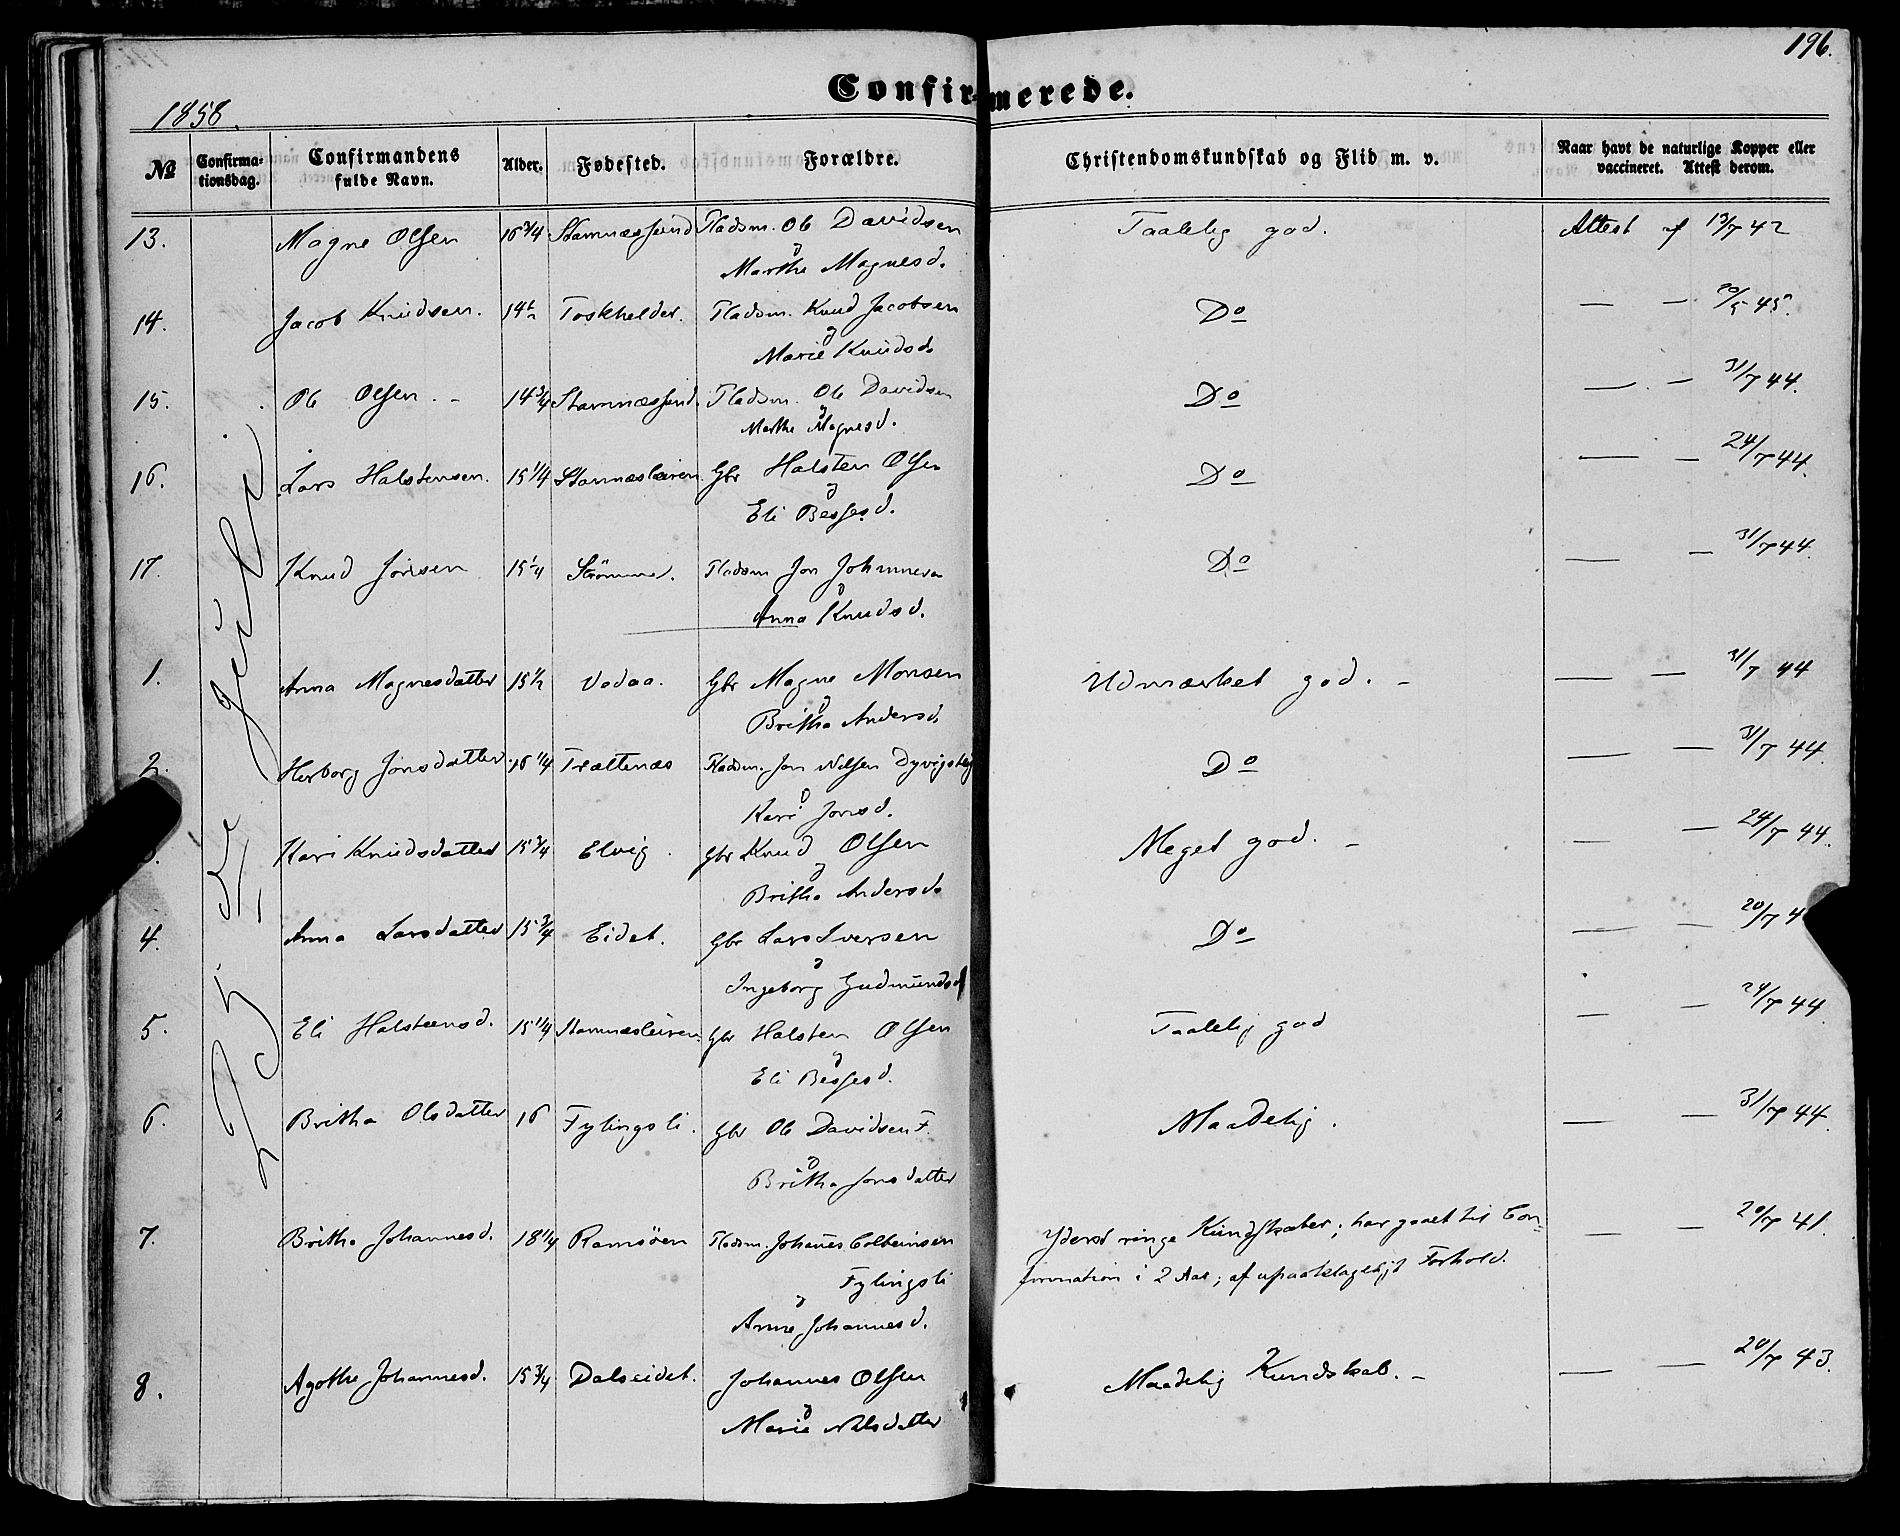 196.
Confirmerede.
1858.
No Confirmationsdag. Confirmandens fulde Navn. Alder. Fødested. Forældre. Christendomskundskab og Flid m. v. Naar havt de naturlige Kopper eller vaccineret. Attest derom.
13. Magne Olsen 16 3/4 Stamnæssund Pladsm. Ole Davidsen Taalelig god. Attest af 13/7 42
Marthe Magnesd.
14. Jacob Knudsen. 14 1/2 Toskhelder. Pladsm. Knud Jacobsen Do — — 45.
Marie Knudsd.
15. Ole Olsen. - 14 3/4 Stamnæssund. Pladsm. Ole Davidsen Do — — 31/7 44.
Marthe Magnesd.
16. Lars Halstensen. 15 1/4 Stamnesleiren. Gbr Halsten Olsen Do — — 24/7 44.
Eli Bessesd.
17. Knud Jonsen 15 1/4 Strømme. Pladsm Jon Johannesen Do — — 31/7 44.
Anna Knudsd.
1. Anna Magnesdatter 15 1/2 Vadaa. Gbr Magne Monsen Udmærket god. - — — 31/7 44
Britha Andersd.
2. Herborg Jonsdatter 16 1/4 Trættenæs Pladsm. Jon Nilsen Do — — 31/7 44.
Kari Jonsd.
Kari Knudsdatter 15 3/4 Elvig. Gbr Knud Olsen Meget god. - — — 24/7 44.
Britha Andersd.
4. Anna Larsdatter 15 3/4 Eidet. Gbr Lars Iversen Do — — 20/7 4
Ingeborg Gudmundsd
5. Eli Halstensd. 15 1/4 Stamnæsleiren. Gbr Halsten Olsen Taalelig god — — 24/7 44.
Eli Bessesd.
6. Britha Olsdatter 16 Fylingsli. Gbr Ole Davidsen F. Maadelig. — — 31/7 44.
Britha Jonsdatter
7. Britha Johannesd. 18 1/4 Ramsøen Pladsm. Johannes Colbeinsen Yderst ringe Kundskaber; har gaaet til Con- — — 20/7 41.
Fylingsli firmation i 2 Aar; af upaaklageligt Forhold.
Anne Johannesd.
8. Agothe Johannesd. 15 3/4 Dalseidet. Johannes Olsen Maadelig Kundskab. - — — 20/7 43.
Marie Nilsdatter